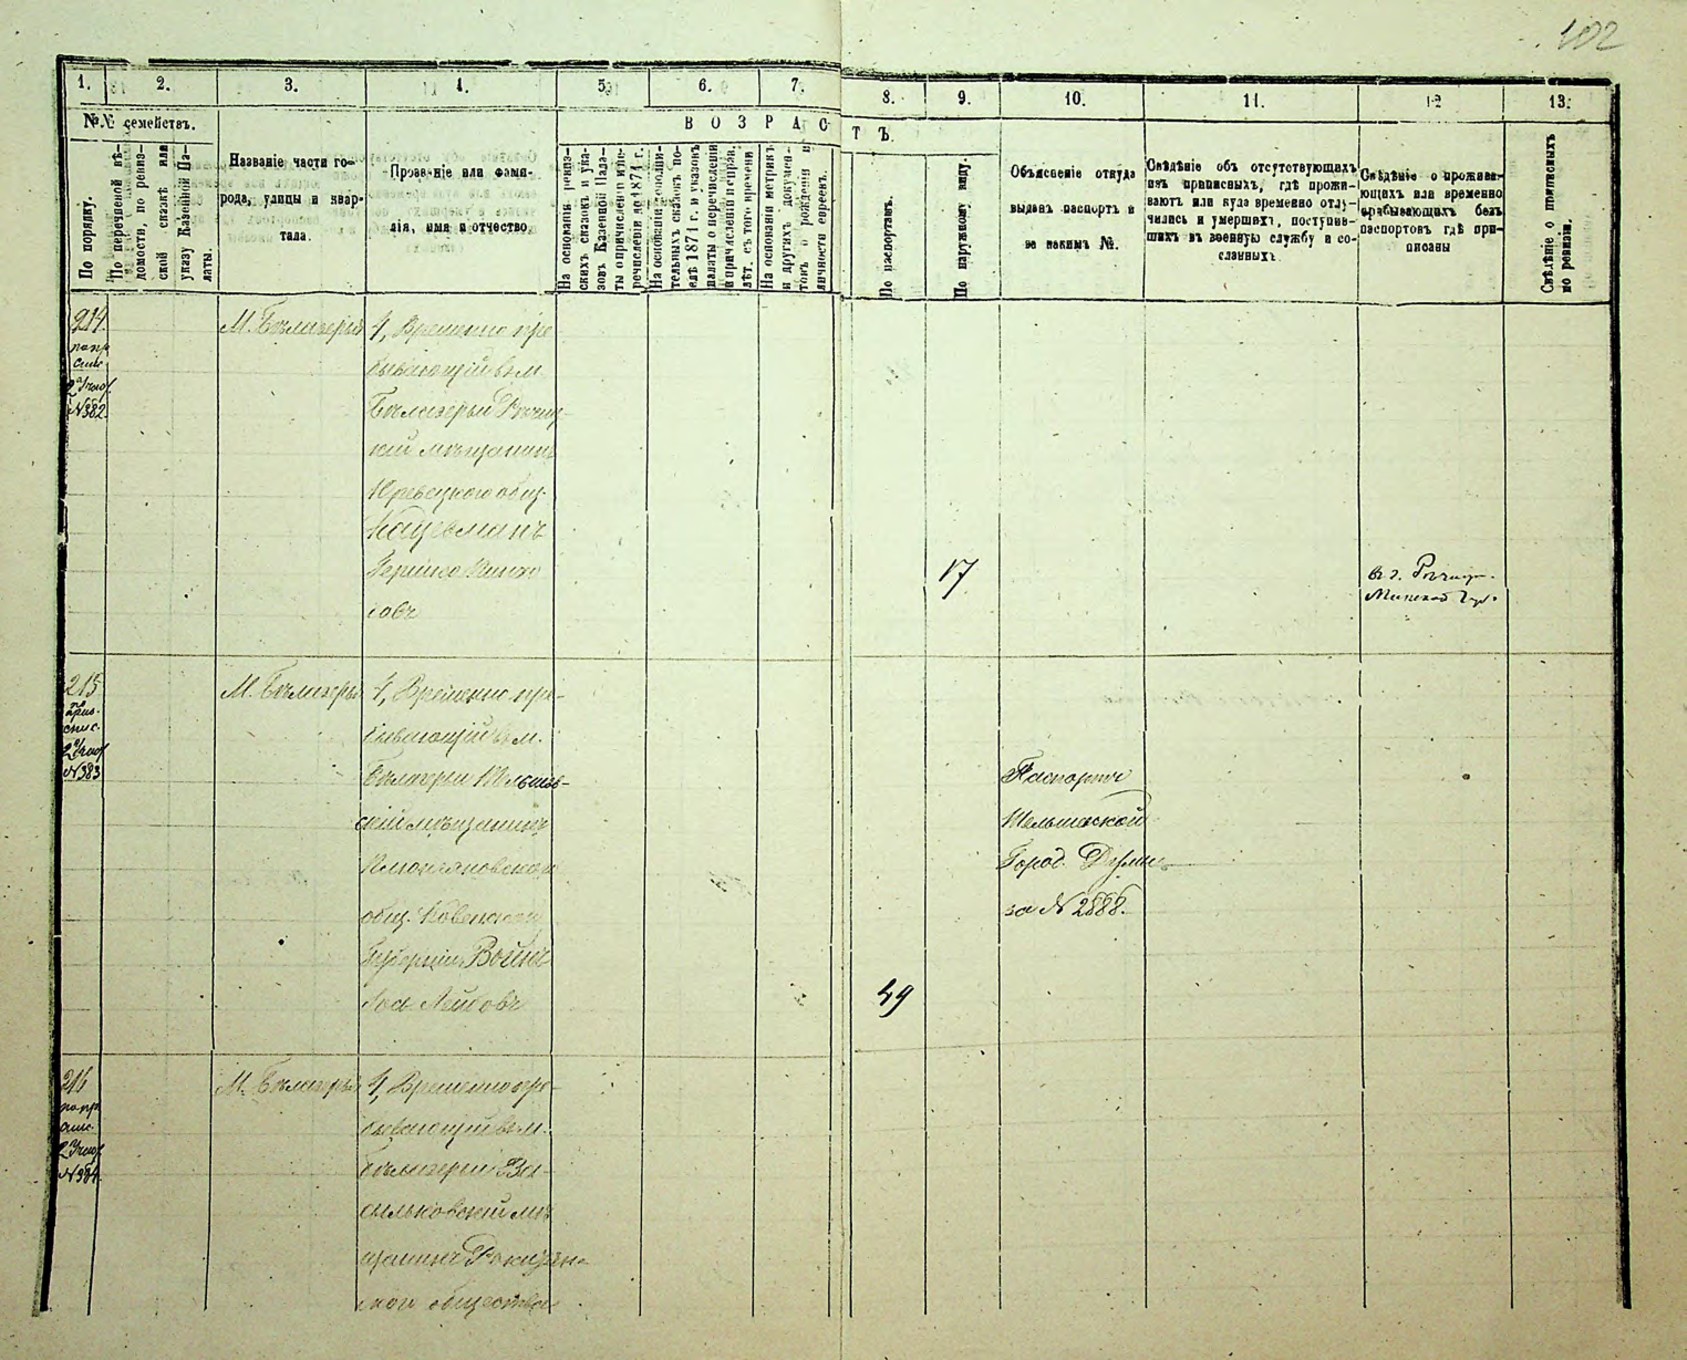 102
1. 2. 3. 4. 5. 6. 7. 8. 9. 10. 11. 12 13.
№№ семействъ.
По порядку.
По перечневой вѣ-
домости, по ревиз-
ской сказкѣ или
указу Казенной Па-
латы.
Названіе части го-
рода, улицы и квар-
тала.
Прозваніе или фами-
лія, имя и отчество
ВОЗРАСТЪ.
На основаніи ревиз-
скихъ сказокъ и ука-
зовъ Казенной Пала-
ты о причисленіи и пе-
речисленіи до 1874 г.
На основаніи дополни-
тельныхъ сказокъ по-
слѣ 1874 г. и указовъ
палаты о перечисленіи
и причисленіи исправ.
лѣт. съ того времени
На основаніи метрикъ
и другихъ докумен-
товъ о рожденіи и
личности евреевъ.
По паспортамъ.
По наружному виду.
Объясненіе откуда
выданъ паспортъ и
за какимъ №.
Свѣдѣніе объ отсутствующихъ
изъ приписныхъ, гдѣ прожи-
ваютъ или куда временно отлу-
чились и умершихъ, поступив-
шихъ въ военную службу и со-
сланныхъ.
Свѣдѣніе о прожива-
ющихъ или временно
пребывающихъ безъ
паспортовъ гдѣ при-
писаны
Свѣдѣніе о приписныхъ
по ревизіи.
214.
по пр
спис
2 Участ.
№382
М. Бѣлозерье
1, Временно пре
бывающій въ м.
Бѣлозерьи Рѣчиц
кій мѣщанинъ
Юревецкого общ.
Кацевманъ
Гершко
совъ
17
въ г. Рѣчицѣ.
Минской Губ.
215
по
приз.
спис.
2 Участ
№383
М. Бѣлозерье
1, Временно пре-
бывающій въ м.
Бѣлозерьи Шельшев-
скій мѣщанинъ
общ. Ковенской
Губерніи
Лейбовъ
49
Паспортъ
Шельшевской
Город. Думы
за № 2888.
216
по пр
спис.
2 Участ
№384
М. Бѣлозерье
1, Временно пре-
бывающій въ м.
Бѣлозерьи Ва-
сильковскій мѣ
щанинъ Рокитян-
ского общества